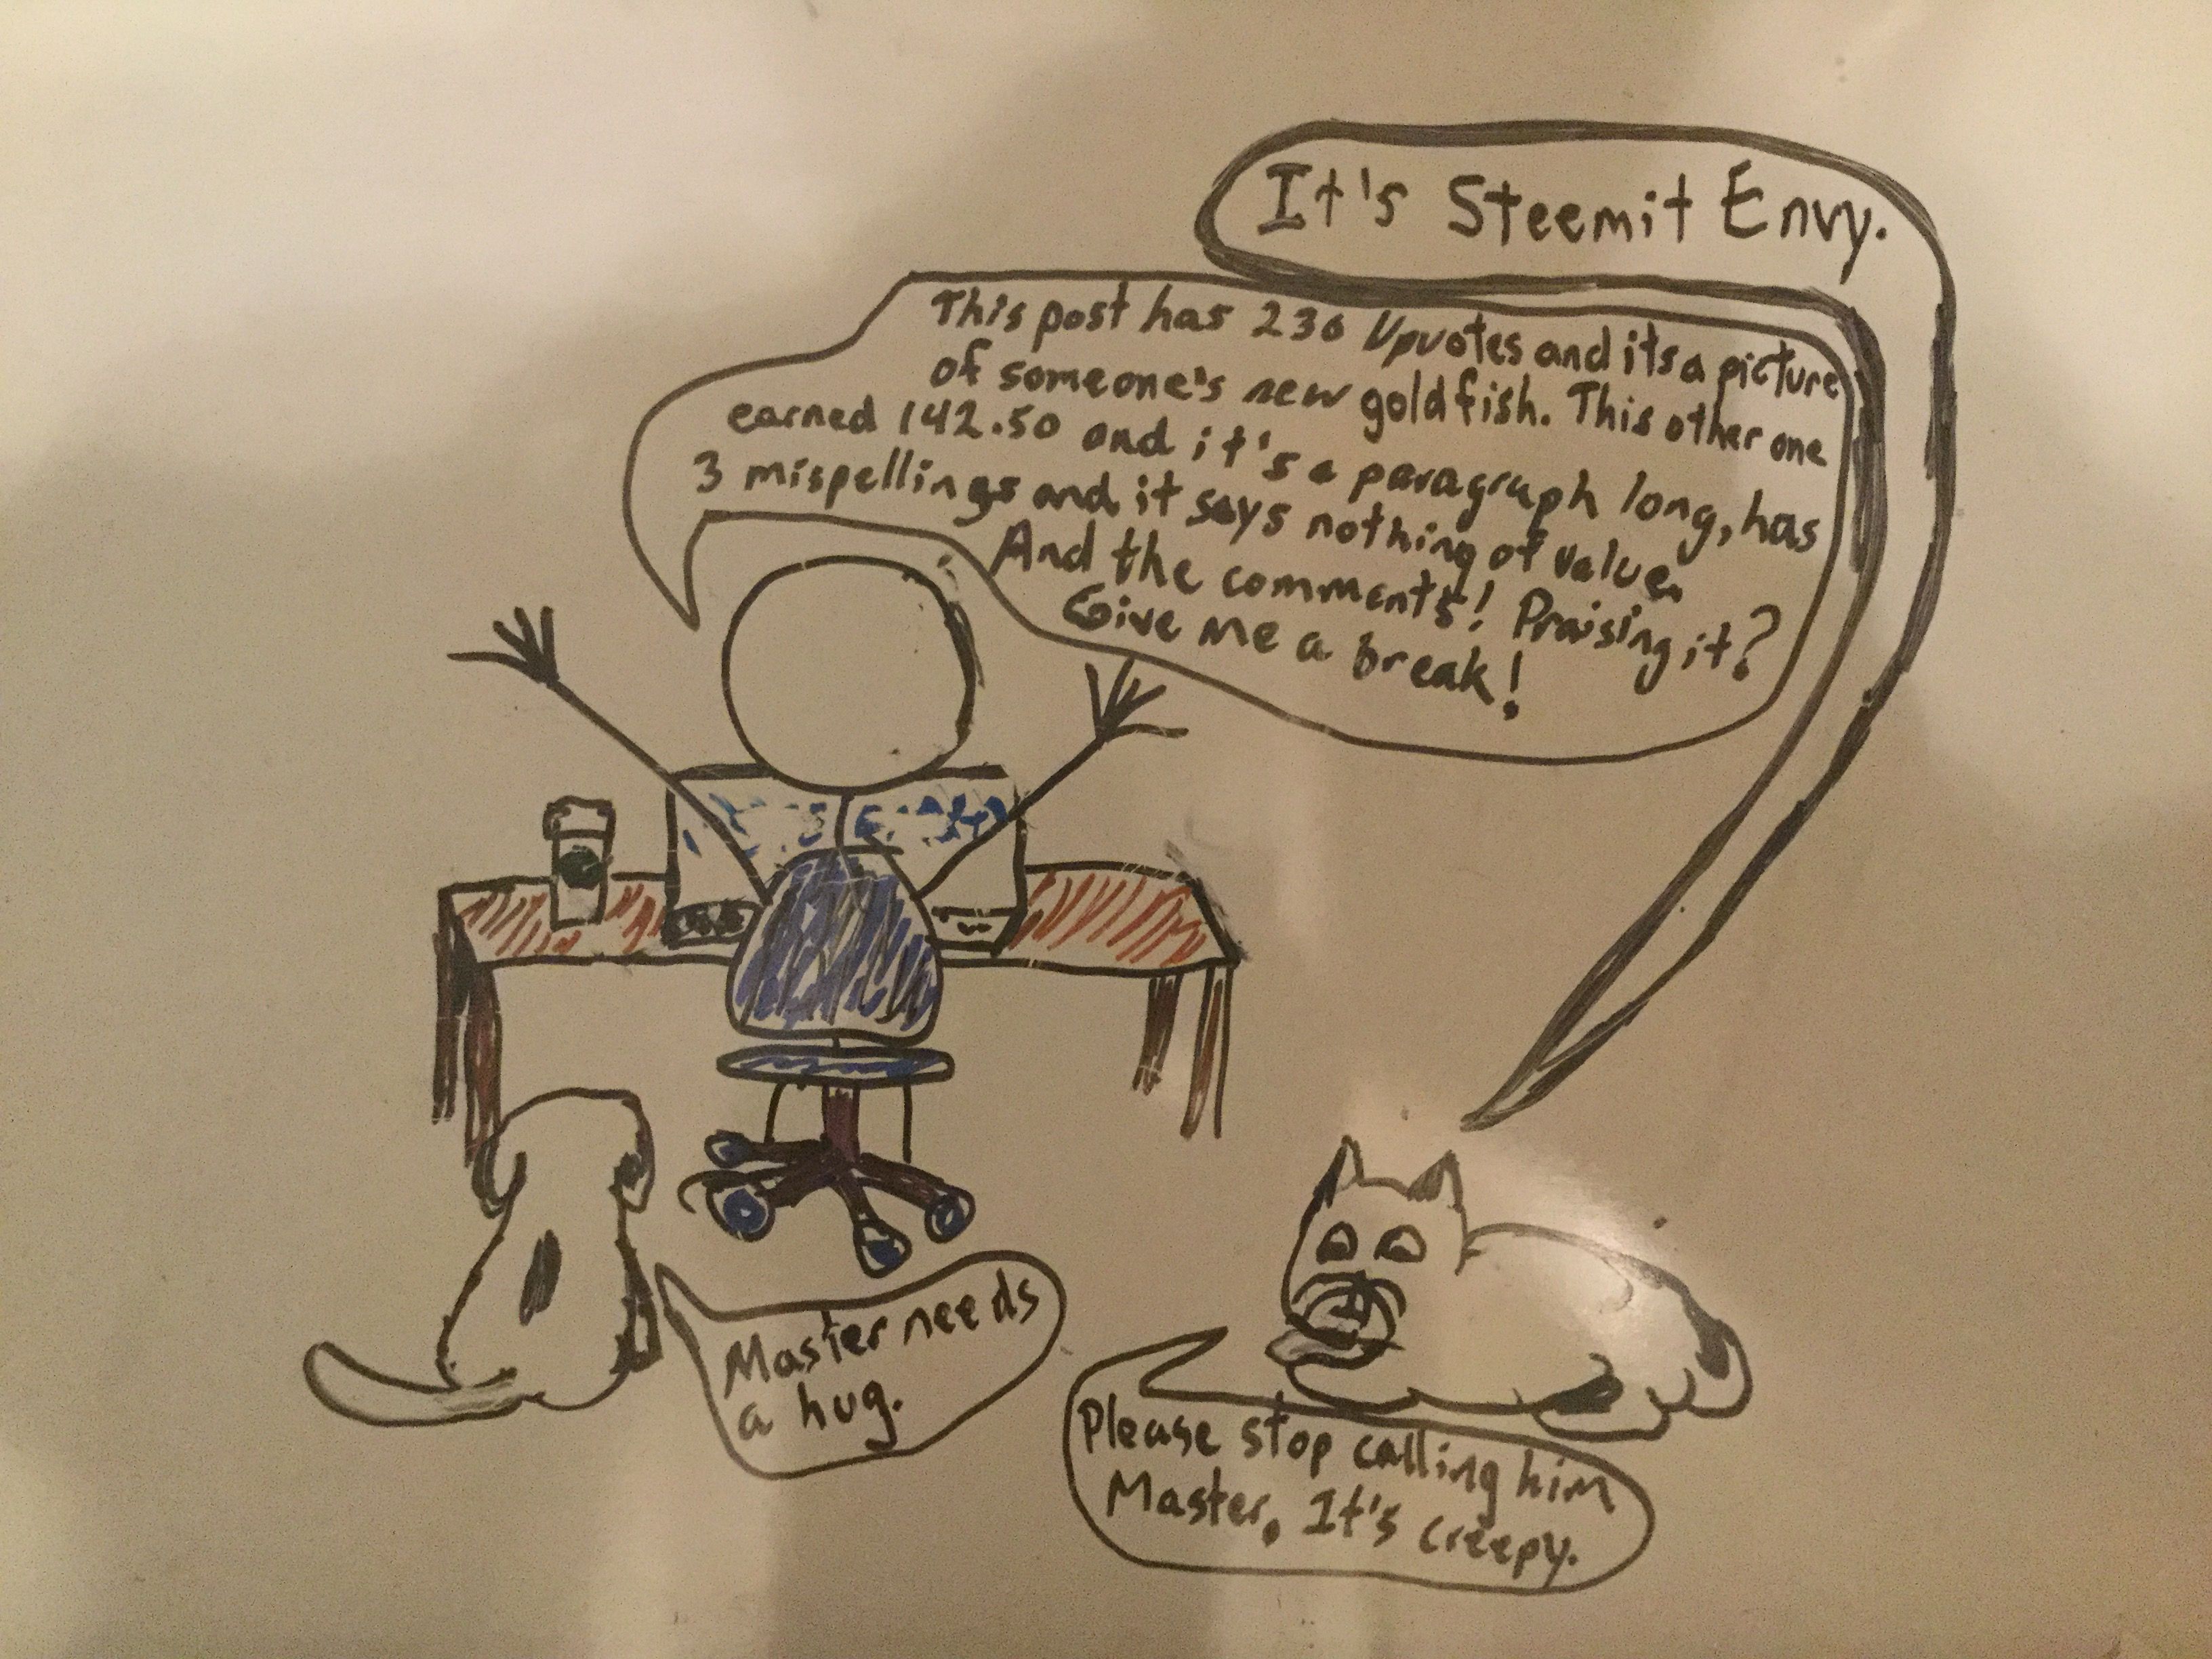 It's Steemit Envy.
This post has 230 Upvotes and its a picture
of someone's new goldfish. This other one
earned 142.50 and it's a paragraph long, has
3 mispellings and it says nothing of value.
And the comments! Praising it?
Give me a break!
Master needs
a hug.
Please stop calling him
Master. It's creepy.